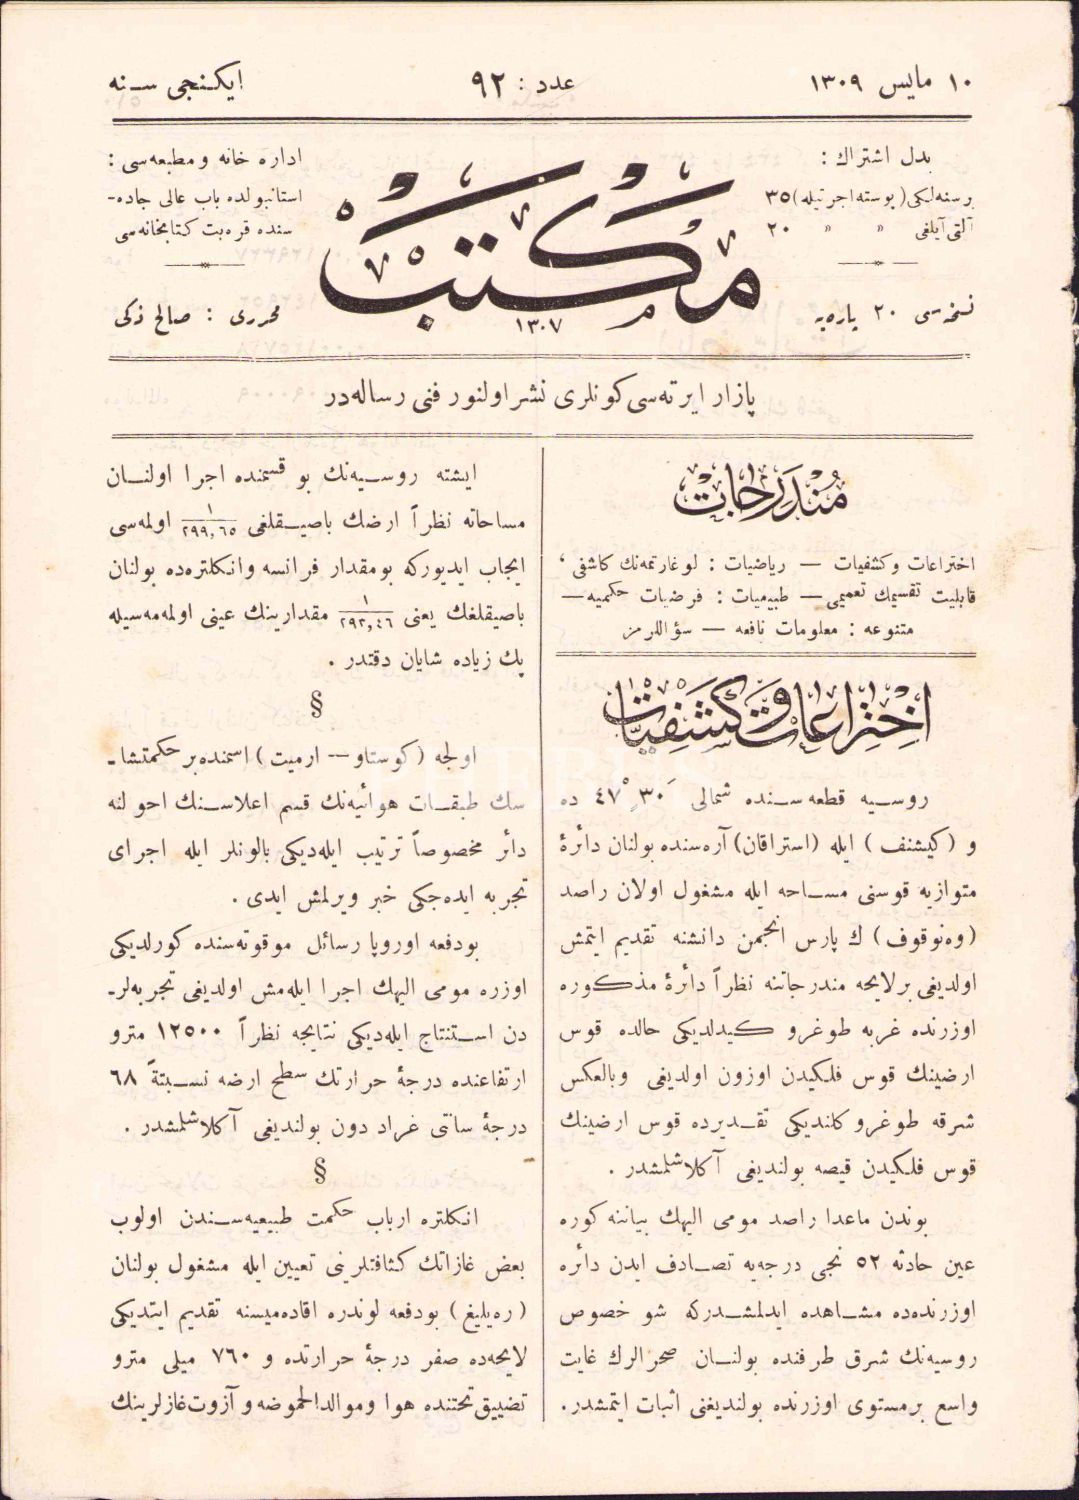 ١٠ مايس ١٣٠٩
عدد : ٩٢
ايكنجى سنه
بدل اشتراك :
برسنه‌لكى (پوسته اجرتيله) ٣٥
آلتى آيلغى » » ٢٠
نسخه‌سى ٢٠ پاره‌يه
مكتب
١٣٠٧
اداره خانه و مطبعه‌سى :
استانبولده باب عالى جاده-
سنده قره‌بت كتابخانه‌سى
محررى : صالح ذكى
پازار ايرته‌سى كونلرى نشر اولنور فنى رساله‌در
مندرجات
اختراعات وكشفيات — رياضيات : لوغارتمه‌نك كاشفى ،
قابليت تقسيمك تعميمى — طبيعيات : فرضيات حكميه —
متنوعه : معلومات نافعه — سؤاللرمز
اختراعات وكشفيات
روسيه قطعه‌سنده شمالى ٣٠َ ٤٧ْ ده
و (كيشنف) ايله (استراقان) آره‌سنده بولنان دائرهٔ
متوازيه قوسنى مساحه ايله مشغول اولان راصد
(وه‌نوقوف) ك پارس انجمن دانشنه تقديم ايتمش
اولديغى برلايحه مندرجاتنه نظراً دائرهٔ مذكوره
اوزرنده غربه طوغرو كيدلديكى حالده قوس
ارضينك قوس فلكيدن اوزون اولديغى وبالعكس
شرقه طوغرو كلنديكى تقديرده قوس ارضينك
قوس فلكيدن قيصه بولنديغى آكلاشلمشدر .
بوندن ماعدا راصد مومى اليهك بياننه كوره
عين حادثه ٥٢ نجى درجه‌يه تصادف ايدن دائره
اوزرنده‌ده مشاهده ايدلمشدركه شو خصوص
روسيه‌نك شرق طرفنده بولنان صحرالرك غايت
واسع برمستوى اوزرنده بولنديغنى اثبات ايتمشدر .
ايشته روسيه‌نك بو قسمنده اجرا اولنان
مساحاته نظراً ارضك باصيقلغى ١/٢٩٩,٦٥ اولمه‌سى
ايجاب ايديوركه بومقدار فرانسه وانكلتره‌ده بولنان
باصيقلغك يعنى ١/٢٩٣,٤٦ مقدارينك عينى اولمه‌مه‌سيله
پك زياده شايان دقتدر .
§
اولجه (كوستاو — ارميت) اسمنده برحكمتشنا-
سك طبقات هوائيه‌نك قسم اعلاسنك احوالنه
دائر مخصوصاً ترتيب ايله‌ديكى بالونلر ايله اجراى
تجربه ايده‌جكى خبر ويرلمش ايدى .
بودفعه اوروپا رسائل موقوته‌سنده كورلديكى
اوزره مومى اليهك اجرا ايله‌مش اولديغى تجربه‌لر-
دن استنتاج ايله‌ديكى نتايجه نظراً ١٢٥٠٠ مترو
ارتفاعنده درجهٔ حرارتك سطح ارضه نسبتةً ٦٨
درجهٔ سانتى غراد دون بولنديغى آكلاشلمشدر .
§
انكلتره ارباب حكمت طبيعيه‌سندن اولوب
بعض غازاتك كثافتلرينى تعيين ايله مشغول بولنان
(ره‌يليغ) بودفعه لوندره اقاده‌ميسنه تقديم ايتديكى
لايحه‌ده صفر درجهٔ حرارتده و ٧٦٠ ميلى مترو
تضييق تحتنده هوا ومولدالحموضه و آزوت غازلرينك